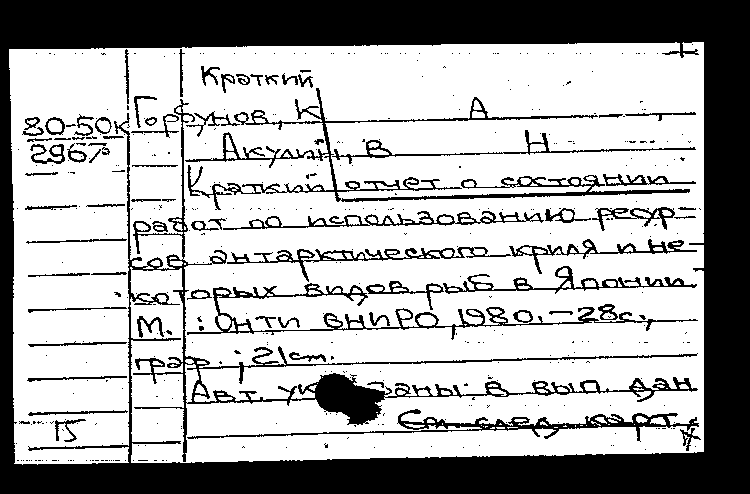 Краткий
80-50к Горбунов, К А ,
2967 Акулин, В Н
Краткий отчет о состоянии
работ по использованию ресур-
сов антарктического криля и не-
которых видов рыб в Японии.-
М. : ОНТИ ВНИРО, 1980. - 28с.,
граф. ; 21см.
Авт. ук заны: в вып. дан
См. след. карт.
15